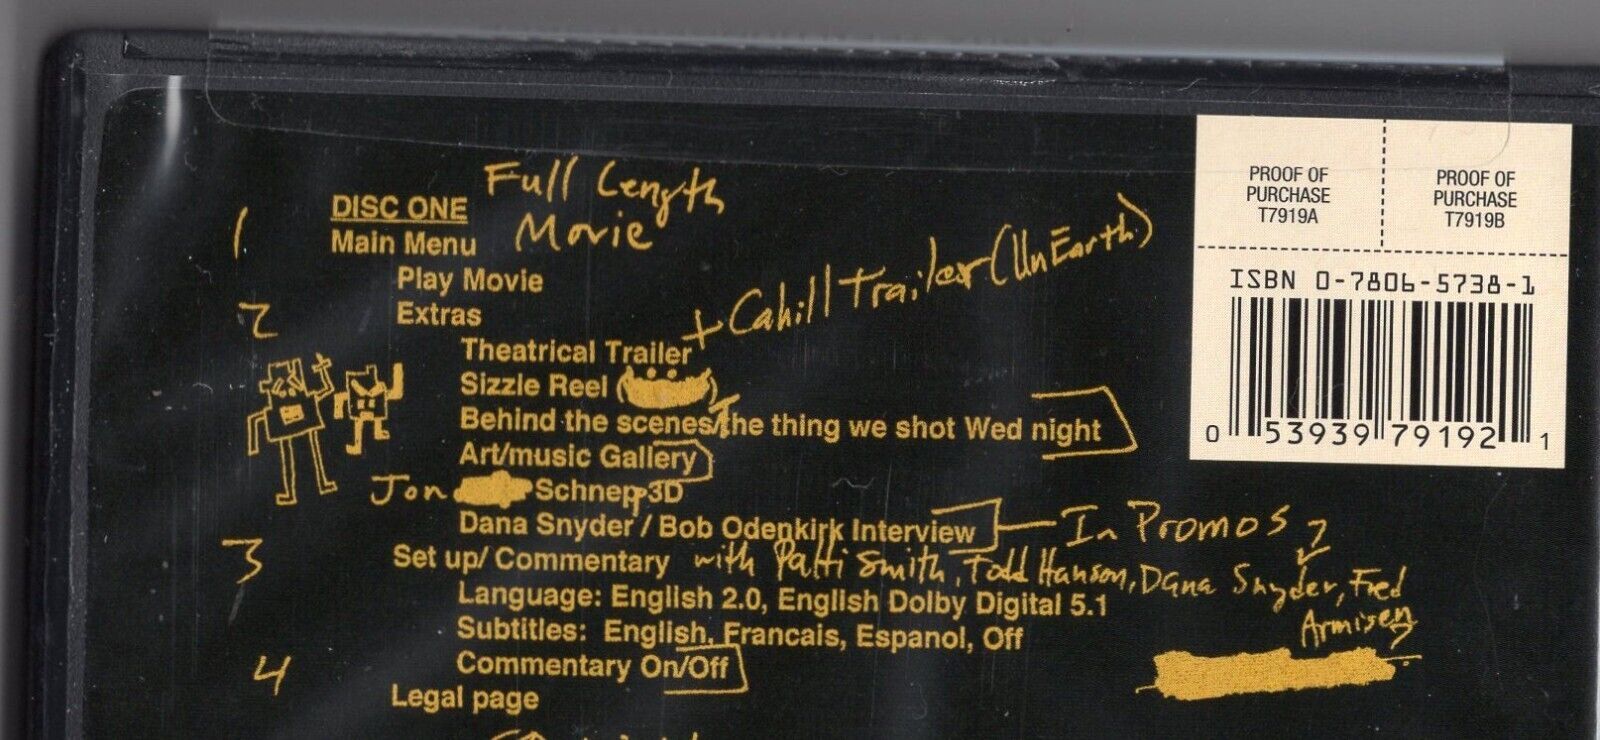 Full Length
1 DISC ONE
Main Menu Movie
Play Movie
2 Extras
+ Cahill Trailer (UnEarth)
Theatrical Trailer
Sizzle Reel ( )
Behind the scenes/The thing we shot Wed night
Art/music Gallery
Jon Schnepp 3D
Dana Snyder / Bob Odenkirk Interview In Promos
3 Set up/ Commentary with Patti Smith, Todd Hanson, Dana Snyder, Fred
Armisen
Language: English 2.0, English Dolby Digital 5.1
Subtitles: English, Francais, Espanol, Off
Commentary On/Off
4 Legal page
PROOF OF
PURCHASE
T7919A
PROOF OF
PURCHASE
T7919B
ISBN 0-7806-5738-1
0 53939 79192 1